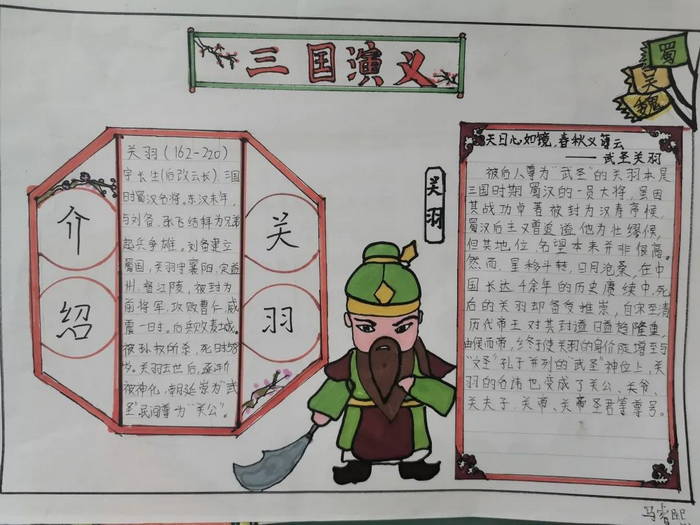 三国演义
蜀
吴
魏
介
绍
关羽(162-220)
字长生(后改云长),三国
时蜀汉名将。东汉末年,
与刘备、张飞结拜为兄弟
起兵争雄。刘备建立
蜀国,关羽守襄阳,定
州,督江陵,被封为
前将军,攻败曹仁,威
震一时。后兵败麦城,
被孙权所杀,死时58
岁。关羽去世后,逐渐
被神化,朝廷崇为“武
圣”民间尊为“关公”。
关
羽
关羽
天日心如镜,春秋义薄云
——武圣关羽
被后人尊为“武圣”的关羽本是
三国时期蜀汉的一员大将,虽因
其战功卓著被封为汉寿亭侯,
蜀汉后主又曾追谥他为壮缪侯,
但其地位名望本来并非很高。
然而,星移斗转,日月沧桑,在中
国长达千余年的历史赓续中,死
后的关羽却备受推崇,自宋至清
历代帝王对其封道日趋隆重,
由侯而帝,终于使关羽的身价陡增至与
“文圣”孔子并列的“武圣”神位上,关
羽的台讳也变成了关公、关爷、
关夫子、关帝、关帝圣君等尊号。
马睿熙